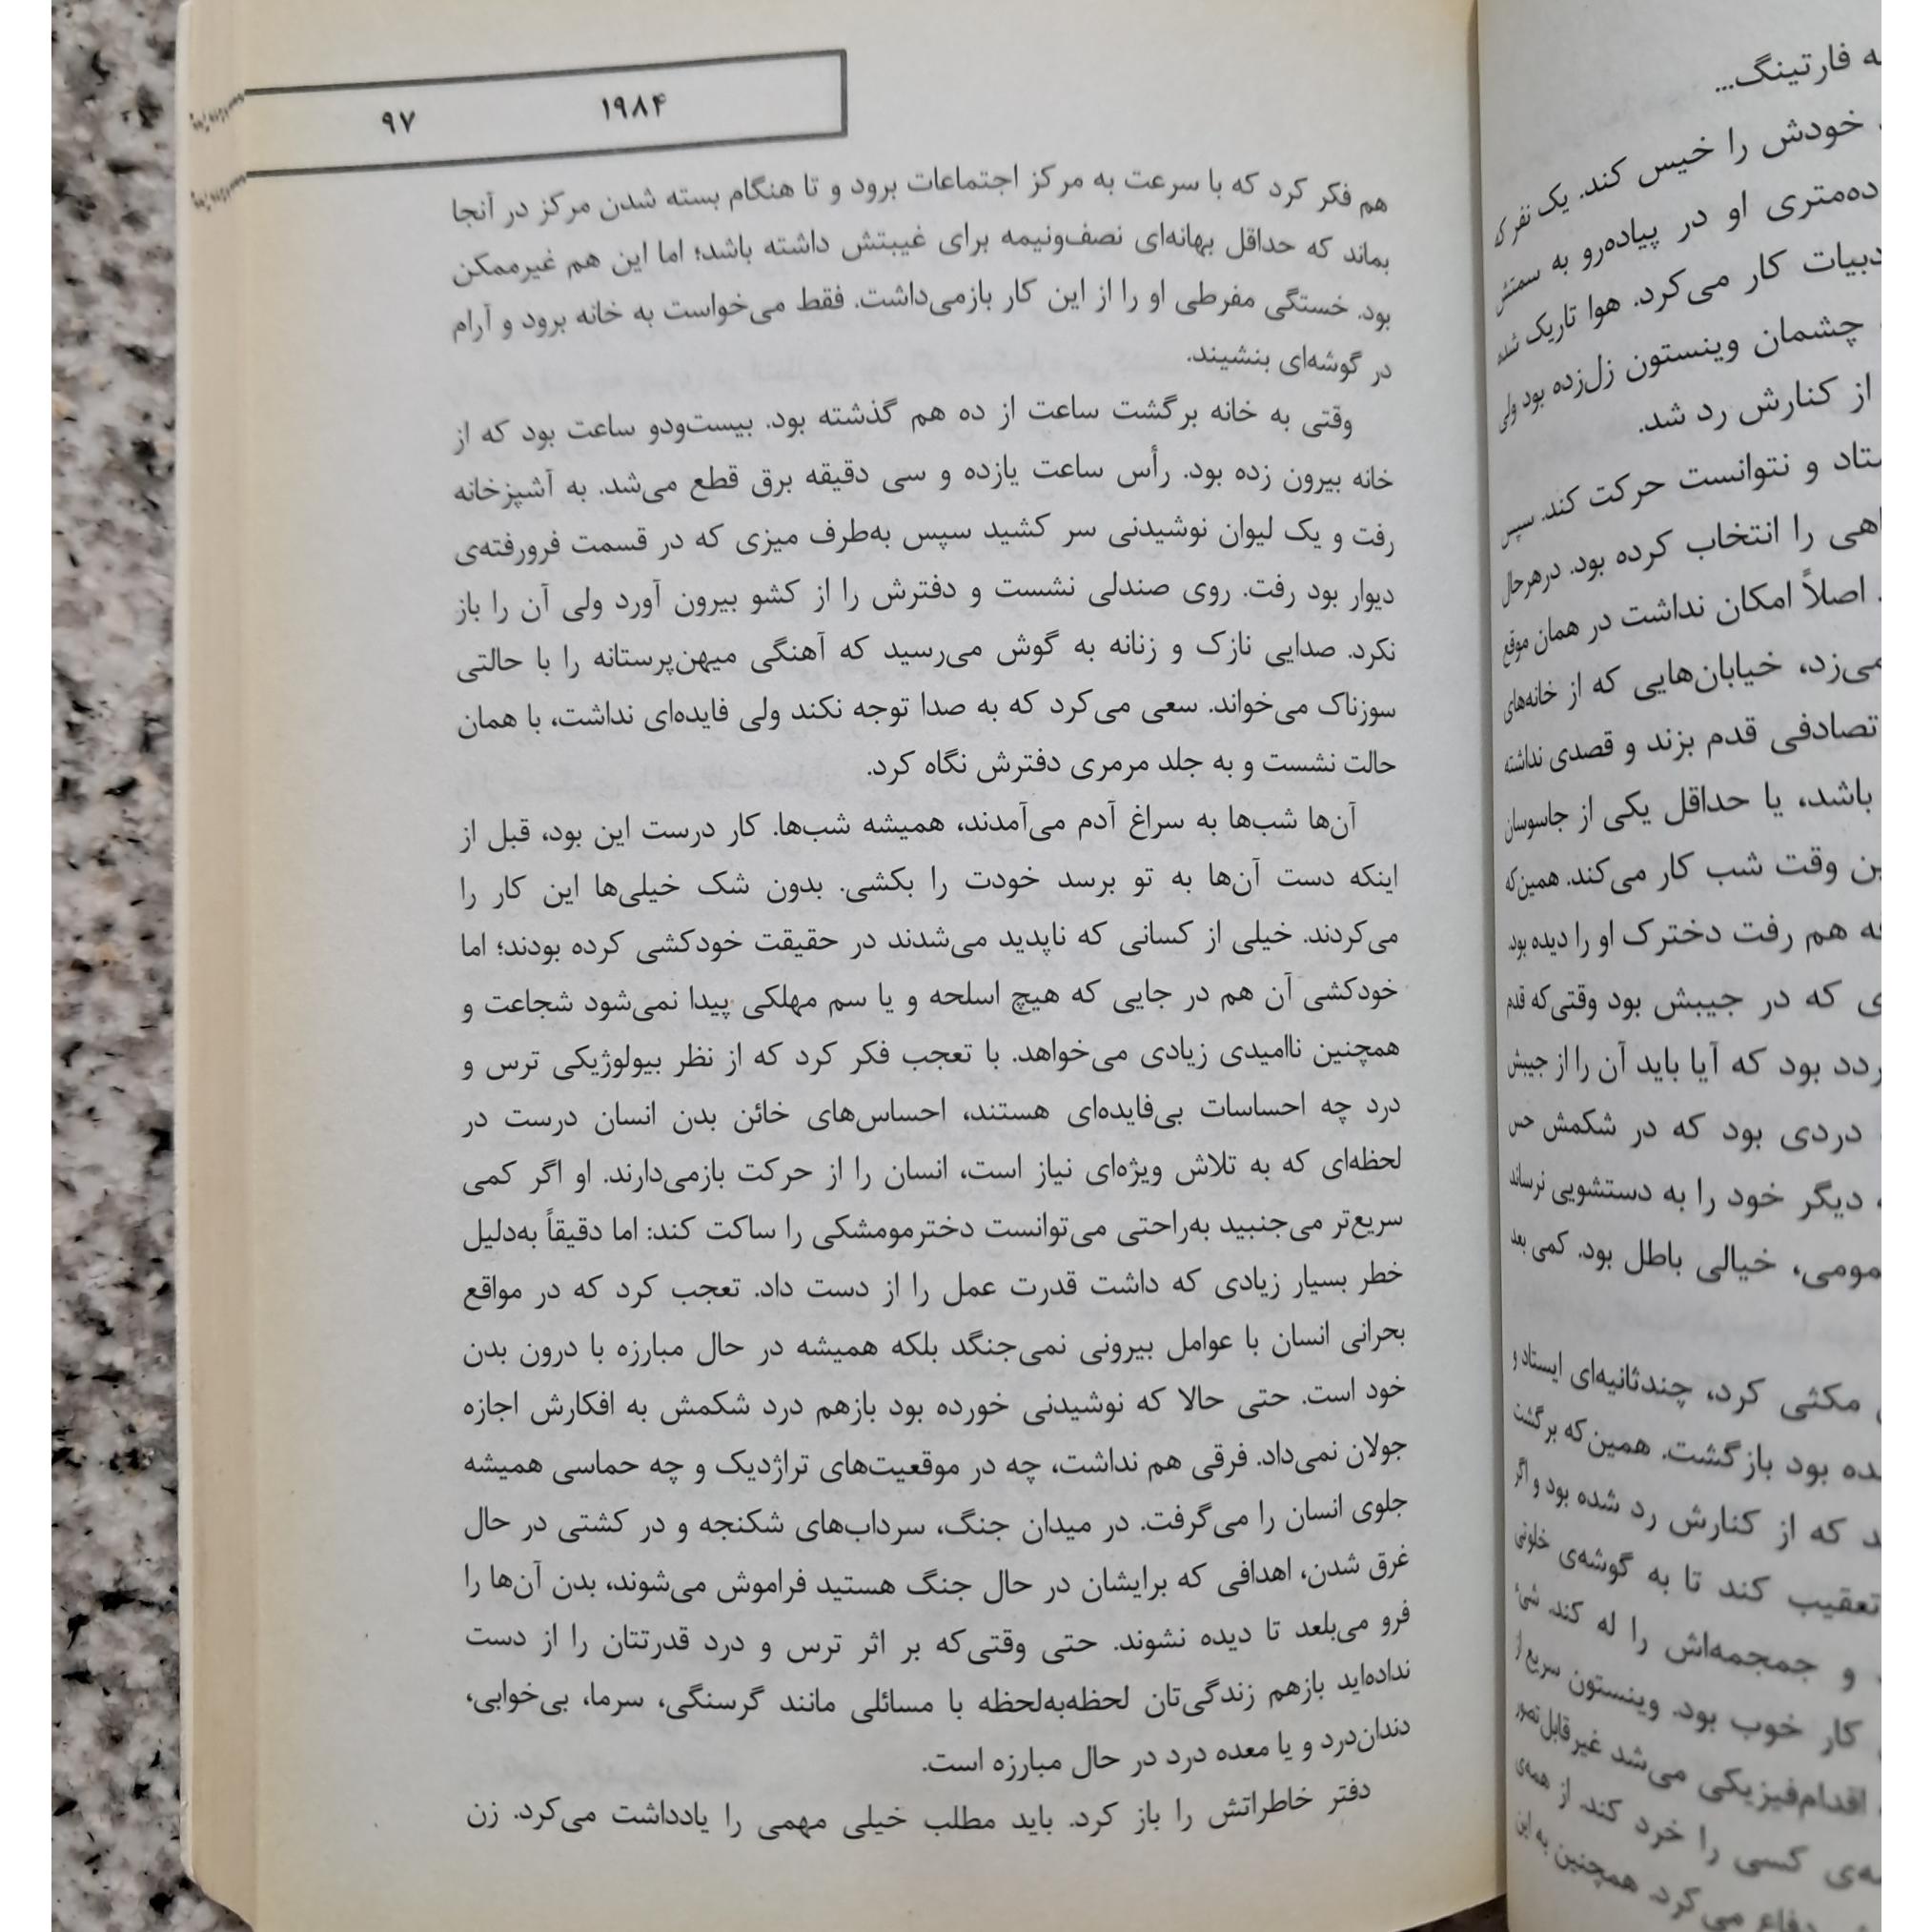 ۱۹۸۴ ۹۷
هم فکر کرد که با سرعت به مرکز اجتماعات برود و تا هنگام بسته شدن مرکز در آنجا
بماند که حداقل بهانه‌ای نصف‌ونیمه برای غیبتش داشته باشد؛ اما این هم غیرممکن
بود. خستگی مفرطی او را از این کار بازمی‌داشت. فقط می‌خواست به خانه برود و آرام
در گوشه‌ای بنشیند.
وقتی به خانه برگشت ساعت از ده هم گذشته بود. بیست‌ودو ساعت بود که از
خانه بیرون زده بود. رأس ساعت یازده و سی دقیقه برق قطع می‌شد. به آشپزخانه
رفت و یک لیوان نوشیدنی سر کشید سپس به‌طرف میزی که در قسمت فرورفته‌ی
دیوار بود رفت. روی صندلی نشست و دفترش را از کشو بیرون آورد ولی آن را باز
نکرد. صدایی نازک و زنانه به گوش می‌رسید که آهنگی میهن‌پرستانه را با حالتی
سوزناک می‌خواند. سعی می‌کرد که به صدا توجه نکند ولی فایده‌ای نداشت، با همان
حالت نشست و به جلد مرمری دفترش نگاه کرد.
آن‌ها شب‌ها به سراغ آدم می‌آمدند، همیشه شب‌ها. کار درست این بود، قبل از
اینکه دست آن‌ها به تو برسد خودت را بکشی. بدون شک خیلی‌ها این کار را
می‌کردند. خیلی از کسانی که ناپدید می‌شدند در حقیقت خودکشی کرده بودند؛ اما
خودکشی آن هم در جایی که هیچ اسلحه و یا سم مهلکی پیدا نمی‌شود شجاعت و
همچنین ناامیدی زیادی می‌خواهد. با تعجب فکر کرد که از نظر بیولوژیکی ترس و
درد چه احساسات بی‌فایده‌ای هستند، احساس‌های خائن بدن انسان درست در
لحظه‌ای که به تلاش ویژه‌ای نیاز است، انسان را از حرکت بازمی‌دارند. او اگر کمی
سریع‌تر می‌جنبید به‌راحتی می‌توانست دخترمومشکی را ساکت کند: اما دقیقاً به‌دلیل
خطر بسیار زیادی که داشت قدرت عمل را از دست داد. تعجب کرد که در مواقع
بحرانی انسان با عوامل بیرونی نمی‌جنگد بلکه همیشه در حال مبارزه با درون بدن
خود است. حتی حالا که نوشیدنی خورده بود بازهم درد شکمش به افکارش اجازه
جولان نمی‌داد. فرقی هم نداشت، چه در موقعیت‌های تراژدیک و چه حماسی همیشه
جلوی انسان را می‌گرفت. در میدان جنگ، سرداب‌های شکنجه و در کشتی در حال
غرق شدن، اهدافی که برایشان در حال جنگ هستید فراموش می‌شوند، بدن آن‌ها را
فرو می‌بلعد تا دیده نشوند. حتی وقتی‌که بر اثر ترس و درد قدرتتان را از دست
نداده‌اید بازهم زندگی‌تان لحظه‌به‌لحظه با مسائلی مانند گرسنگی، سرما، بی‌خوابی،
دندان‌درد و یا معده درد در حال مبارزه است.
دفتر خاطراتش را باز کرد. باید مطلب خیلی مهمی را یادداشت می‌کرد. زن
فارتینگ...
خودش را خیس کند. یک نفر که
ده‌متری او در پیاده‌رو به سمتش
کار می‌کرد. هوا تاریک شده
چشمان وینستون زل‌زده بود ولی
از کنارش رد شد.
و نتوانست حرکت کند. سپس
را انتخاب کرده بود. درهرحال
اصلاً امکان نداشت در همان موقع
می‌زد، خیابان‌هایی که از خانه‌های
تصادفی قدم بزند و قصدی نداشته
باشد، یا حداقل یکی از جاسوسان
وقت شب کار می‌کند. همین‌که
هم رفت دخترک او را دیده بود.
که در جیبش بود وقتی‌که قدم
بود که آیا باید آن را از جیبش
دردی بود که در شکمش حس
دیگر خود را به دستشویی نرساند
خیالی باطل بود. کمی بعد
مکثی کرد، چندثانیه‌ای ایستاد و
بود بازگشت. همین‌که برگشت
که از کنارش رد شده بود و اگر
تعقیب کند تا به گوشه‌ی خلوتی
و جمجمه‌اش را له کند.
کار خوب بود. وینستون سریع از
اقدام‌فیزیکی می‌شد غیرقابل‌تصور
کسی را خرد کند. از همه‌ی
دفاع می‌کرد. همچنین به این